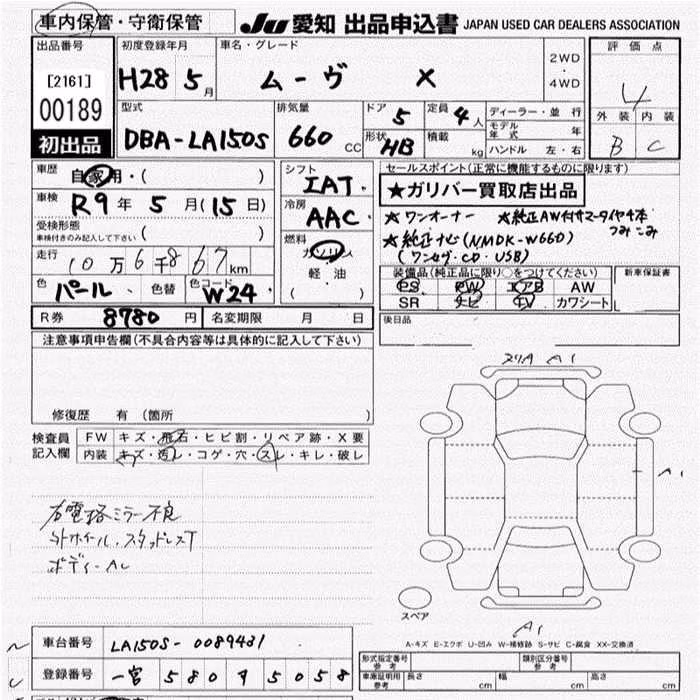 車内保管・守衛保管 JU 愛知 出品申込書 JAPAN USED CAR DEALERS ASSOCIATION
出品番号 初度登録年月 車名・グレード 2WD ・ 4WD 評価点
[2161] H28 5月 ムーヴ X 4
00189 型式 排気量 ドア 5 定員 4人 ディーラー・並行 外装 内装
初出品 DBA-LA150S 660cc 形状 HB 積載 kg モデル年式 年 B C
ハンドル 左・右
車歴 自家用・( ) シフト IAT セールスポイント(正常に機能するものに限ります)
車検 R9年5月(15日) 冷房 AAC ★ガリバー買取店出品
受検形態 ★ワンオーナー ★純正AW付サマータイヤ4本
車検付きのみ記入して下さい ( ) つみこみ
燃料 ガソリン ★純正ナビ(NMDK-W660)
走行 10万6千867km 軽油 (ワンセグ・CD・USB)
( ) 装備品(純正品に限り○をつけてください) 新車保証書
色 パール 色替 色コード W24 PS PW エアB AW
SR ナビ TV カワシート
R券 8780円 名変期限 月 日 後日品
注意事項申告欄(不具合内容等は具体的に記入して下さい)
スリA A1
修復歴 有 (箇所 )
検査員 FW キズ・飛石・ヒビ割・リペア跡・X要
記入欄 内装 キズ・汚レ・コゲ・穴・スレ・キレ・破レ
A1
右電格ミラー不良
社外ホイル、スタッドレスT
ボディーAU
スペア
A1
A-キズ E-エクボ U-凹み W-補修跡 S-サビ C-腐食 XX-交換済
車台番号 LA150S-0089431
型式指定番号 参考 類別区分番号 参考
登録番号 一宮 580 5058
車庫証明用 参考 長さ cm 幅 cm 高さ cm